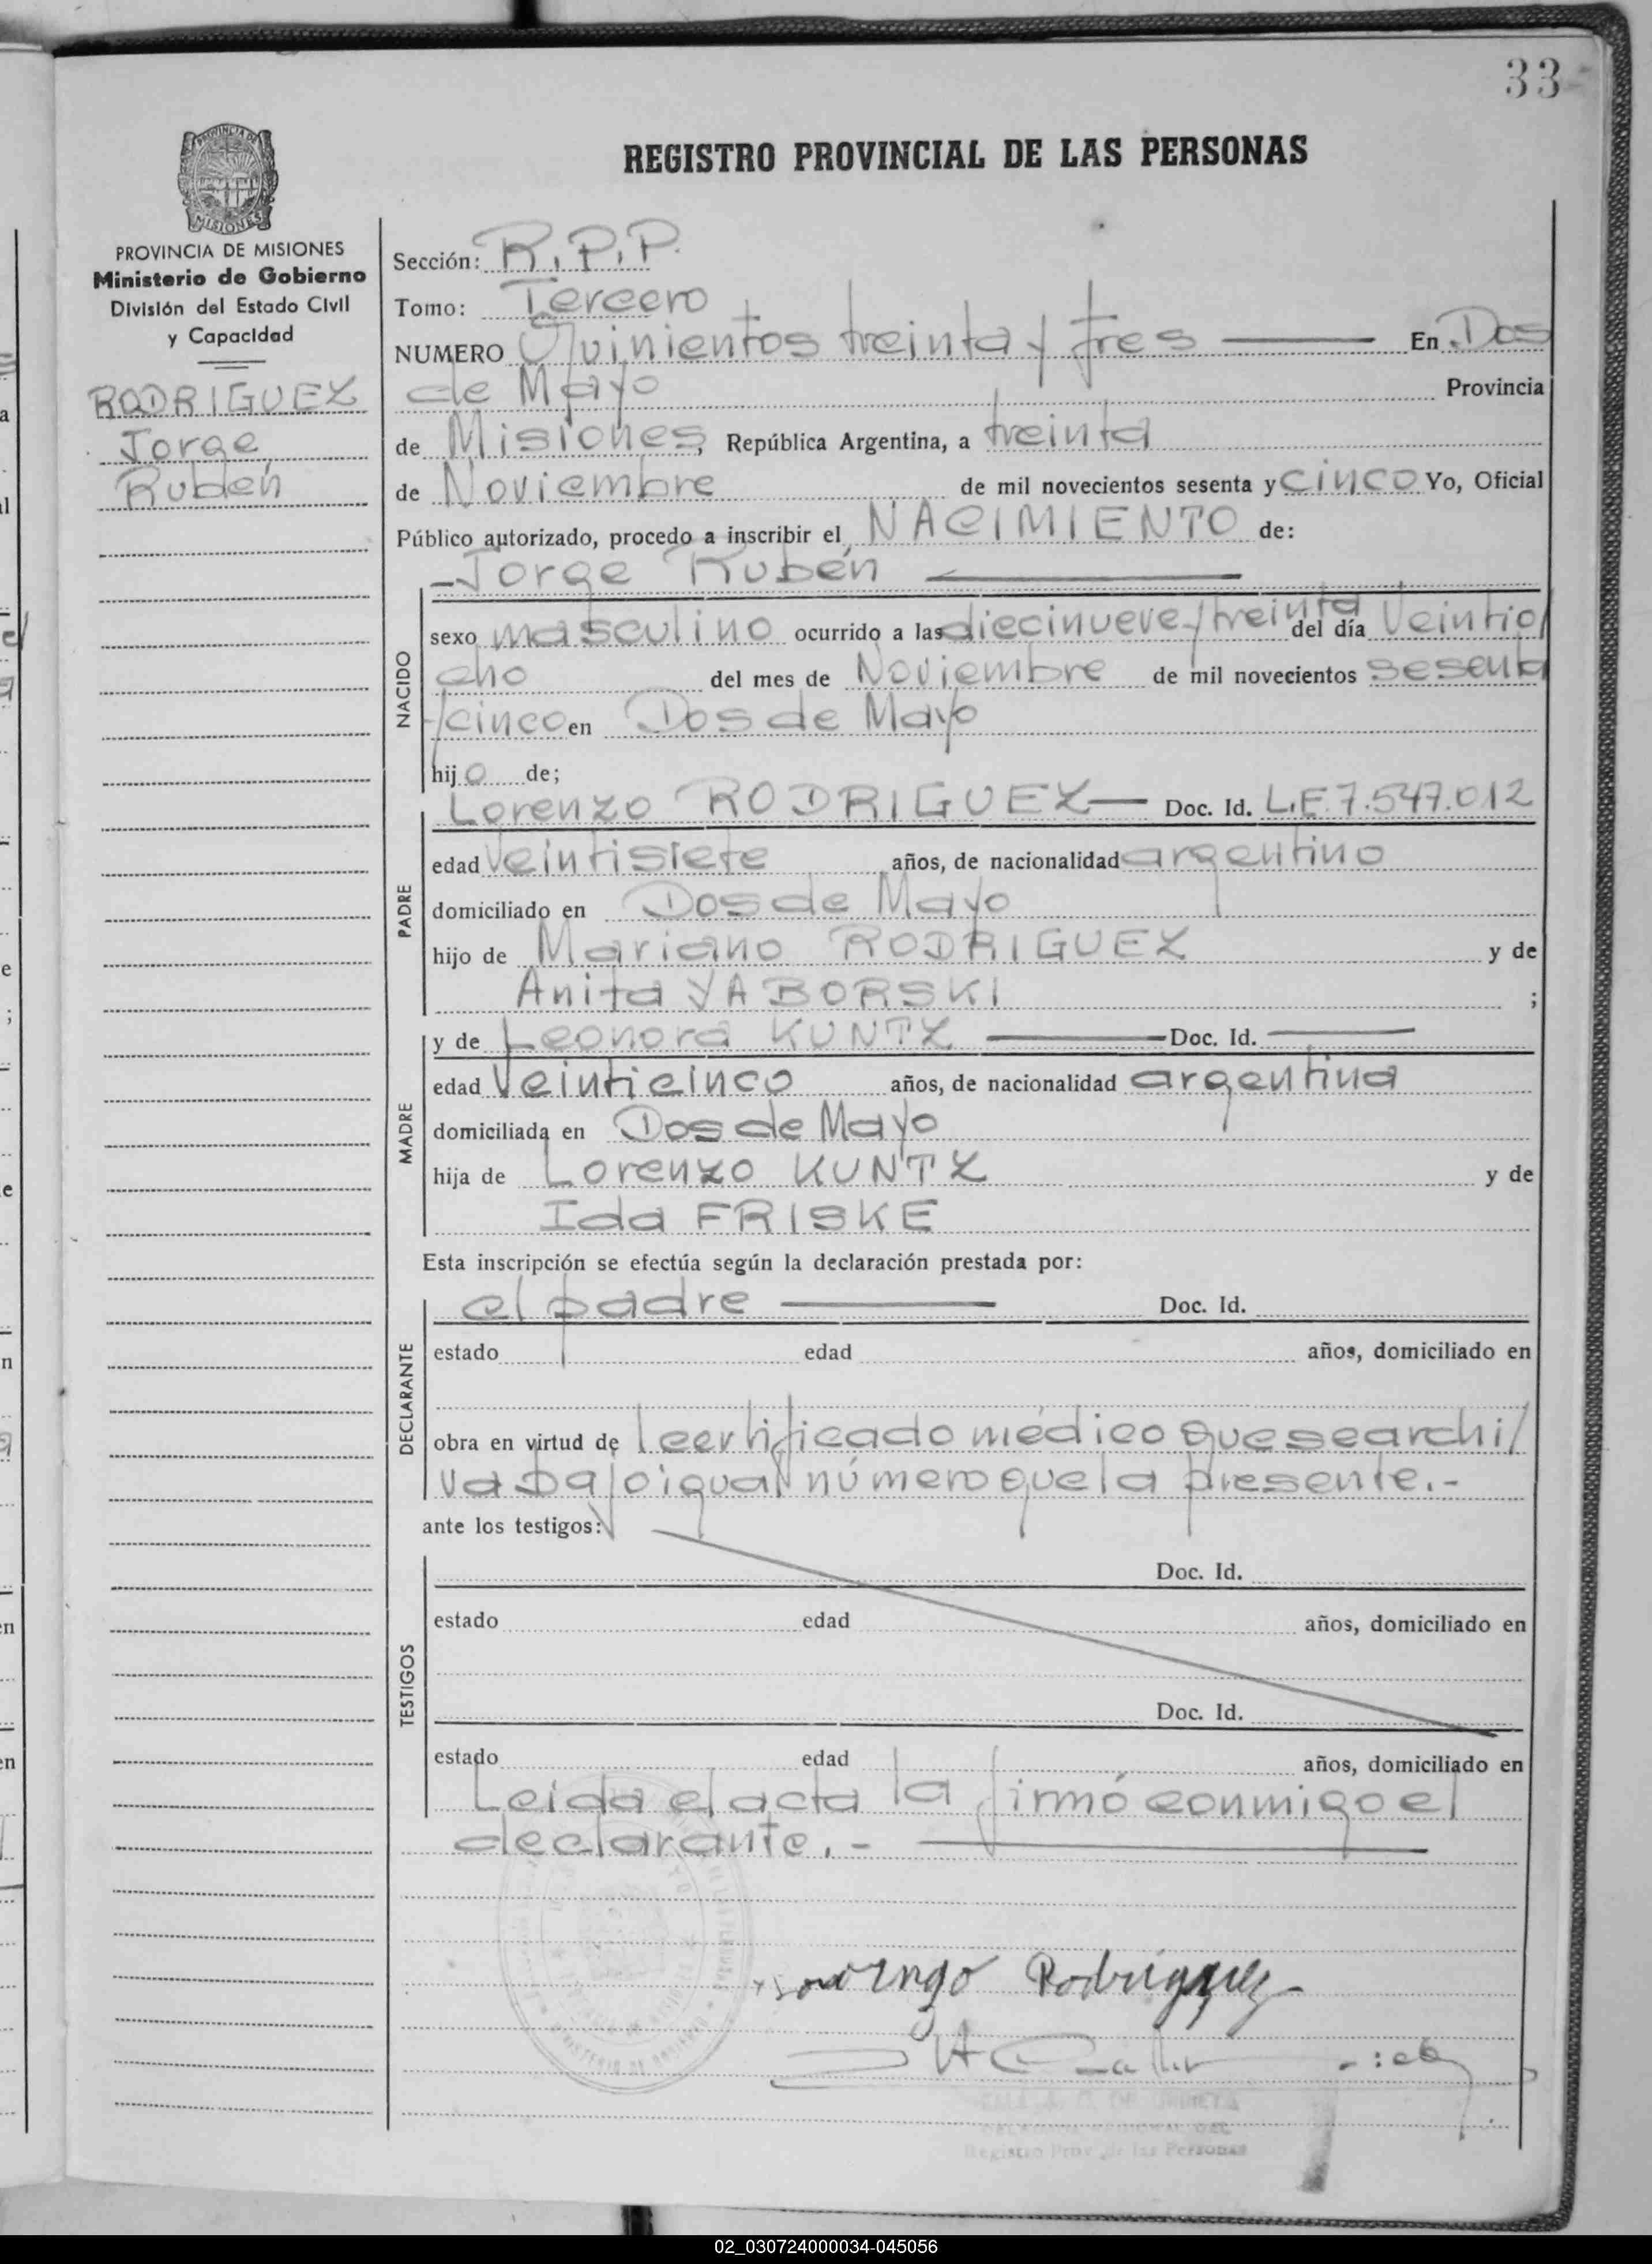 33
REGISTRO PROVINCIAL DE LAS PERSONAS
PROVINCIA DE MISIONES
Ministerio de Gobierno
División del Estado Civil
y Capacidad
RODRIGUEZ
Jorge
Rubén
Sección: R.P.P.
Tomo: Tercero
NUMERO Quinientos treinta y tres En Dos
de Mayo Provincia
de Misiones, República Argentina, a treinta
de Noviembre de mil novecientos sesenta y cinco Yo, Oficial
Público autorizado, procedo a inscribir el NACIMIENTO de:
Jorge Rubén
NACIDO
sexo masculino ocurrido a las diecinueve y treinta del día Veintio/
cho del mes de Noviembre de mil novecientos sesenta
y cinco en Dos de Mayo
hijo de;
PADRE
Lorenzo RODRIGUEZ — Doc. Id. L.E. 7.547.012
edad veintisiete años, de nacionalidad argentino
domiciliado en Dos de Mayo
hijo de Mariano RODRIGUEZ y de
Anita YABORSKI ;
MADRE
y de Leonora KUNTZ — Doc. Id. —
edad Veinticinco años, de nacionalidad argentina
domiciliada en Dos de Mayo
hija de Lorenzo KUNTZ y de
Ida FRISKE
Esta inscripción se efectúa según la declaración prestada por:
DECLARANTE
el padre — Doc. Id.
estado edad años, domiciliado en
obra en virtud de l certificado médico que se archi/
va bajo igual número que la presente.-
ante los testigos:
TESTIGOS
Doc. Id.
estado edad años, domiciliado en
Doc. Id.
estado edad años, domiciliado en
Leida el acta la firmó conmigo el
declarante.-
Rodriguez
Registro Prov. de las Personas
02_030724000034-045056